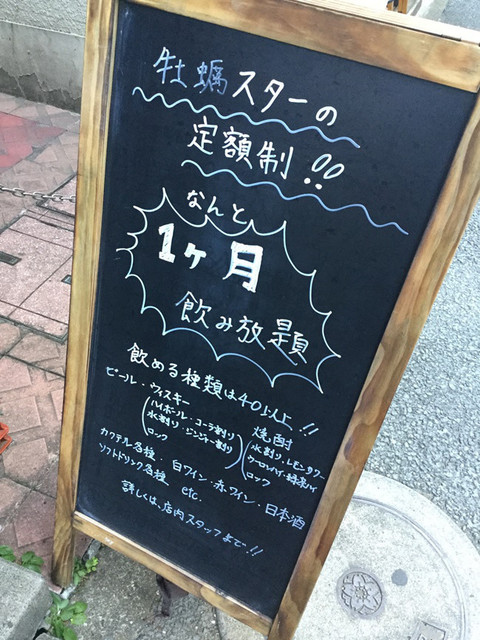 牡蠣スターの
定額制!!
なんと
1ヶ月
飲み放題
飲める種類は40以上!!
ビール・ウィスキー
(ハイボール・コーラ割り
水割り・ジンジャー割り
ロック)
焼酎
(水割り・レモンサワー
ウーロンハイ・緑茶ハイ
ロック)
カクテル各種・白ワイン・赤ワイン・日本酒
ソフトドリンク各種 etc.
詳しくは、店内スタッフまで!!